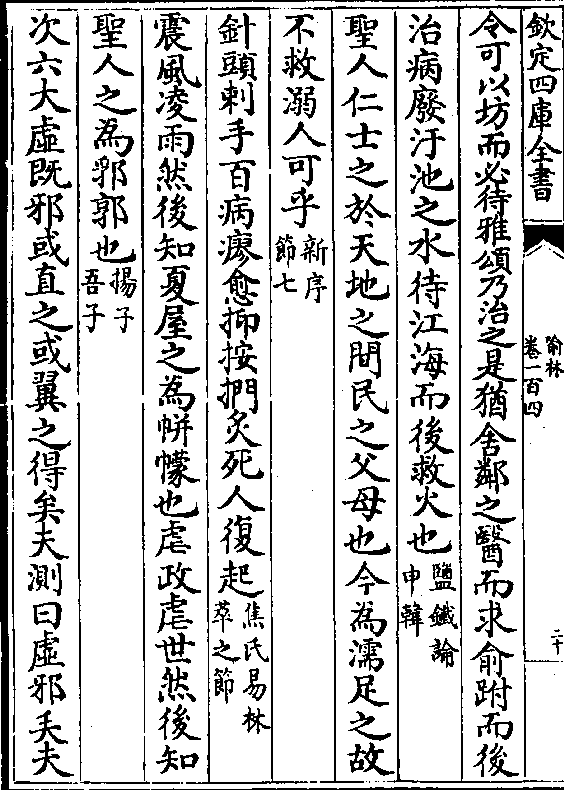 欽定四庫全書
喻林
卷一百四
二十
令可以坊而必待雅頌乃治之是猶舍鄰之醫而求俞跗而後
治病廢汙池之水待江海而後救火也鹽鐵論申韓
聖人仁士之於天地之間民之父母也今為濡足之故
不救溺人可乎新序節七
針頭刺手百病瘳愈抑按捫灸死人復起焦氏易林萃之節
震風凌雨然後知夏屋之為帡幪也虐政虐世然後知
聖人之為郛郭也揚子吾子
次六大虛既邪或直之或翼之得矣夫測曰虛邪夫夫